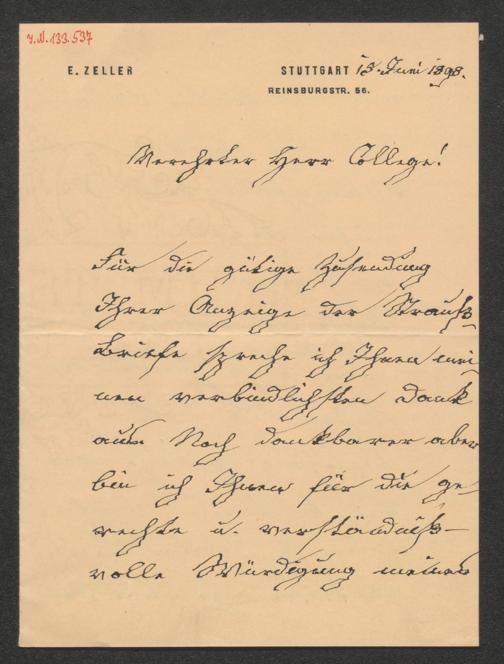 J.N. 133.537
E. ZELLER
STUTTGART 15 Juni 1898.
REINSBURGSTR. 56.
Verehrter Herr College!
Für die gütige Zusendung
Ihrer Anzeige der Strauß-
briefe spreche ich Ihnen mei
nen verbindlichsten Dank
aus. Noch dankbarer aber
bin ich Ihnen für die ge-
rechte u. verständniß-
volle Würdigung meines